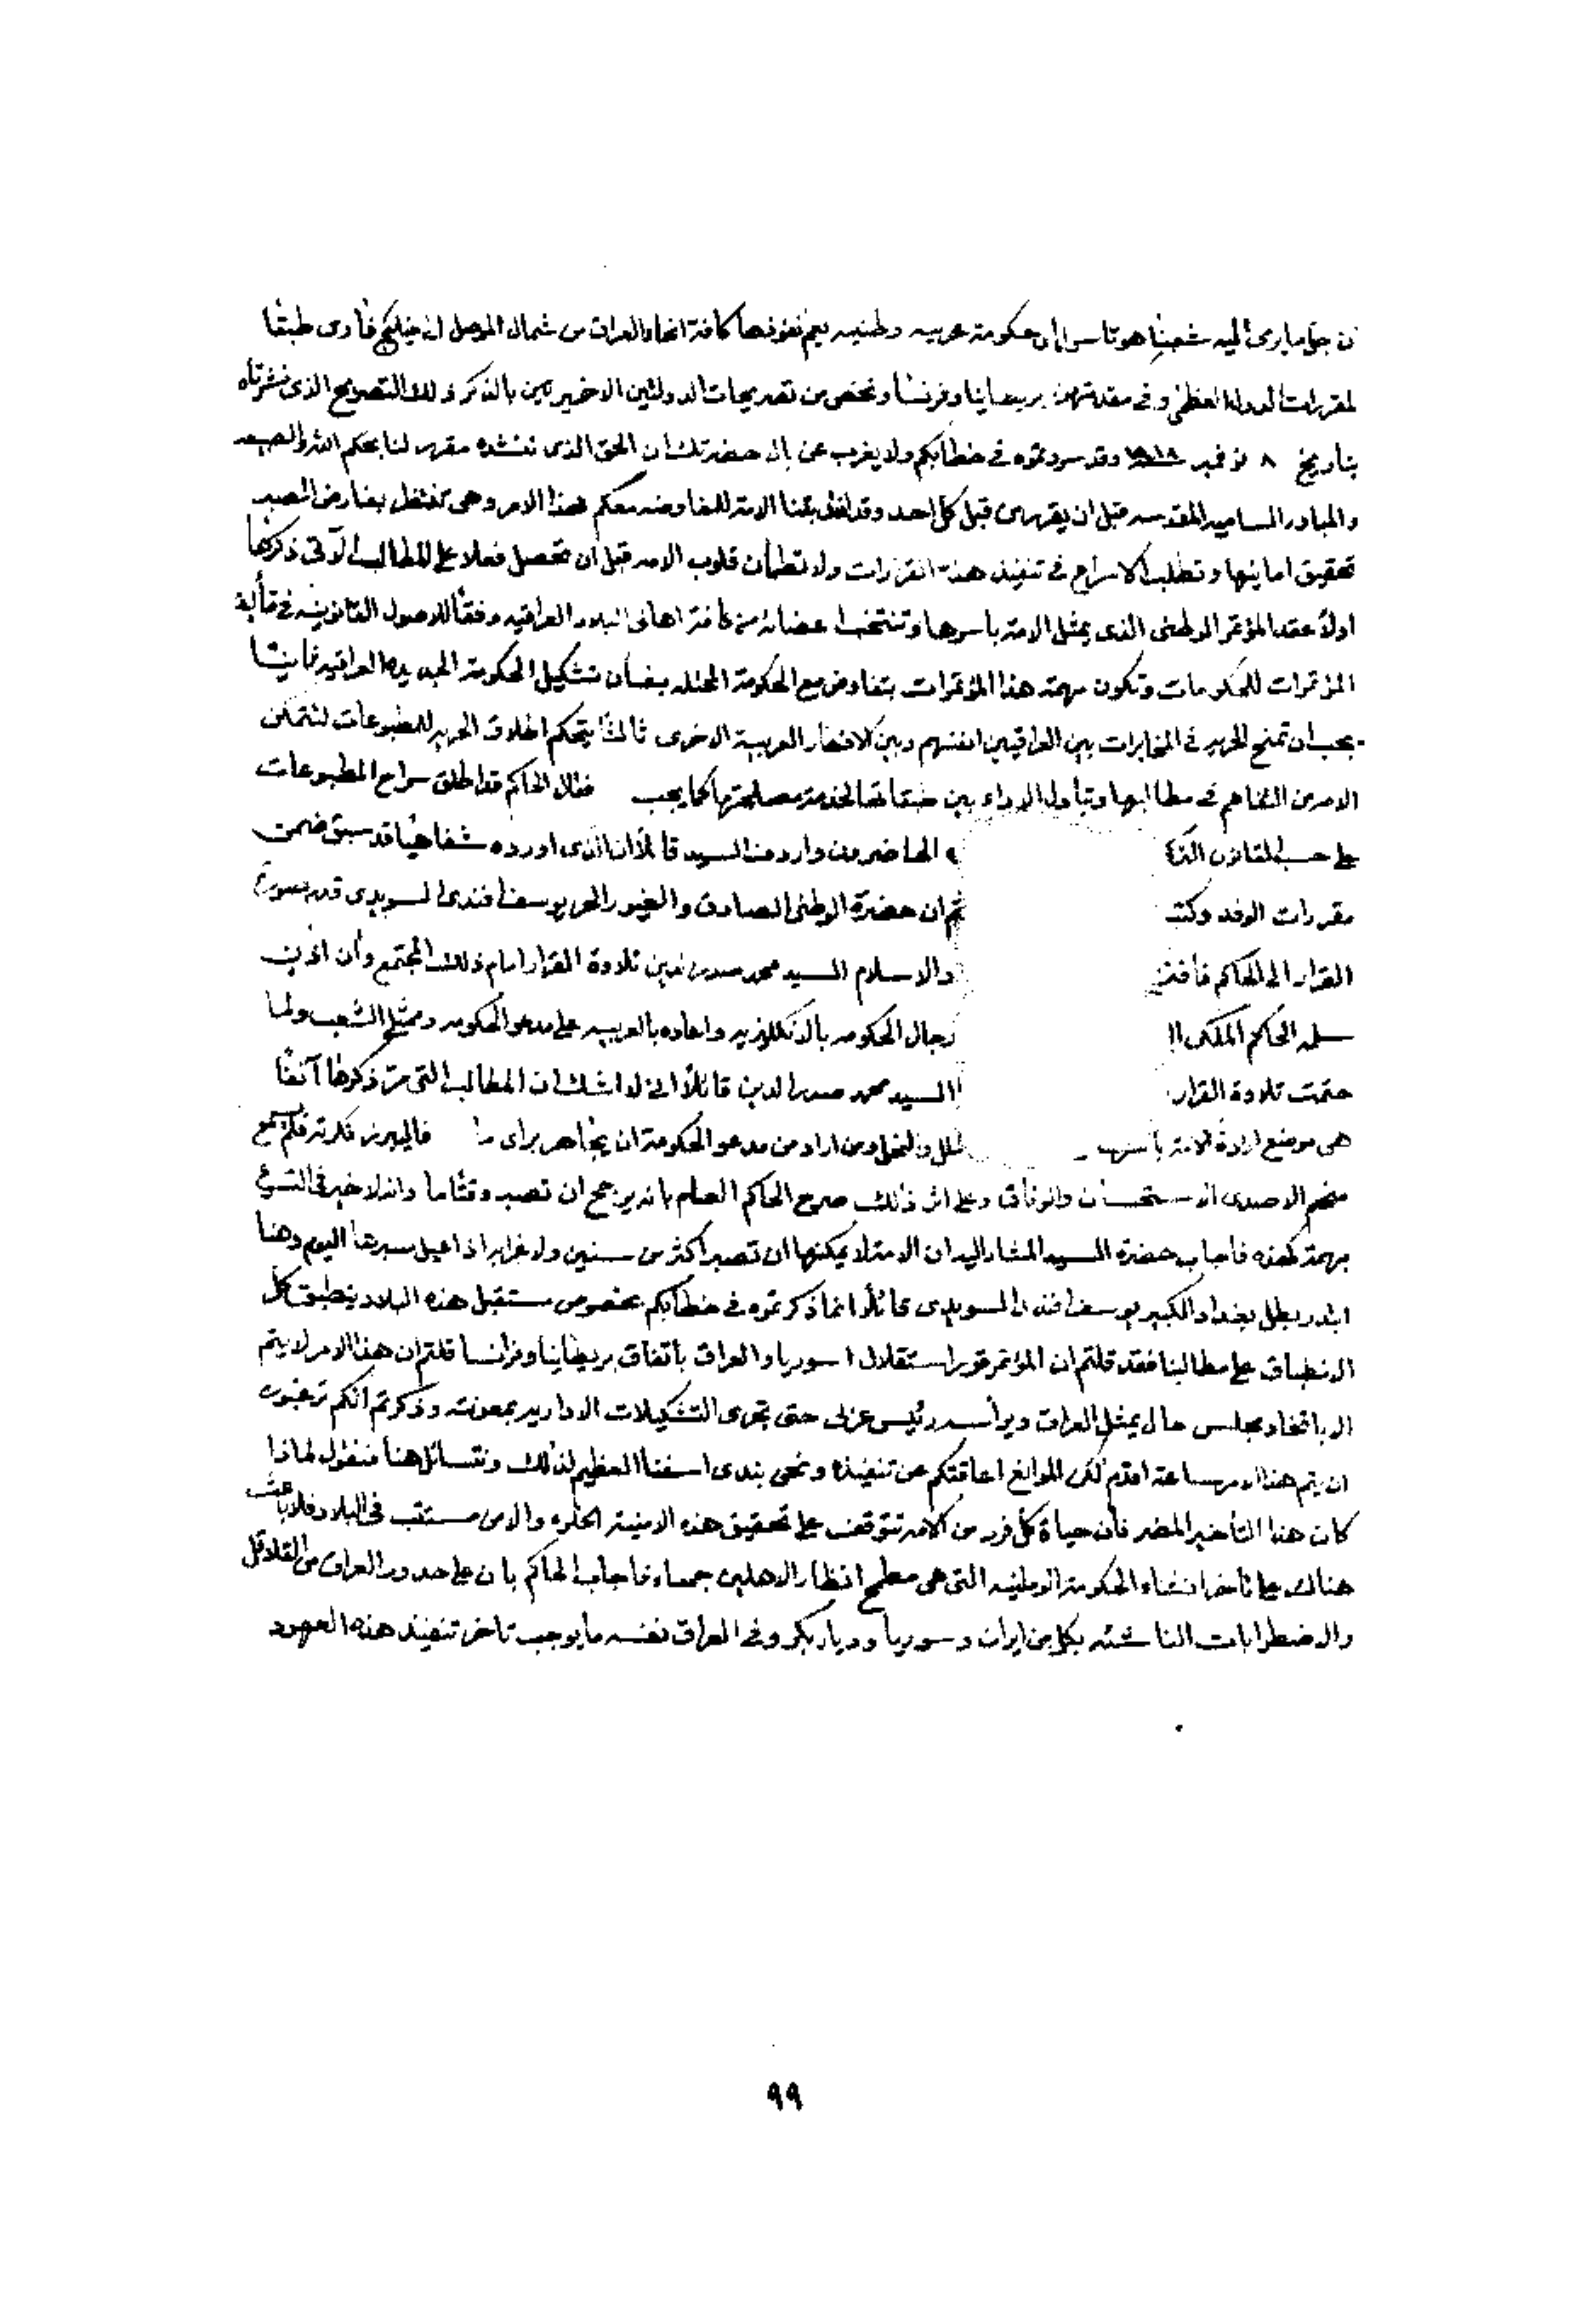 ان جل ما يرمى اليه شعبنا هو تأسيس حكومة عربيه وطنيه يعم نفوذها كافة انحاء العراق من شمال الموصل الى خليج فارس طبقا
لمقررات الدول العظمى وفى مقدمتهن بريطانيا وفرنسا ونخص من تصريحات الدولتين الاخيرتين بالذكر ذلك التصريح الذى نشرتاه
بتاريخ ٨ نوفمبر ١٩١٨ وقد سردتموه فى خطابكم ولا يغرب عن بال حضرتك ان الحق الذى ننشده مقرر لنا بحكم
والمبادئ الساميه المقدسه قبل ان يقرره من قبل كل احد وقد الامة للمفاوضه معكم بهذا الامر وهى تنتظر بفارغ الصبر
تحقيق امانيها وتطلب الاسراع فى تنفيذ هذه المقررات ولا تطمأن قلوب الامه قبل ان تحصل فعلا على المطالب الآتى ذكرها
اولاً عقد المؤتمر الوطنى الذى يمثل الامة بأسرها وتنتخب اعضائه من كافة اهالى البلاد العراقيه وفقاً للاصول القانونيه فى
المؤتمرات للحكومات وتكون مهمة هذا المؤتمر ان يتفاوض مع الحكومة المحتله بشأن تشكيل الحكومة الجديده العراقيه ثانيا
يجب ان تمنح الحريه فى المخابرات بين العراقيين انفسهم وبين الاقطار العربية الاخرى ثالثاً يتحكم اطلاق الحريه للمطبوعات لتتمكن
الامة من التفاهم فى مطالبها وتبادل الاراء بين طبقاتها لخدمة مصلحتها كما يجب فقال الحاكم قد اطلق سراح المطبوعات
على حسب القانون الحاضرون واردف السيد قائلاً ان الذى اورده شفاهيا قد سبق ضمن
مقررات الوفد وكتب ثم ان حضرة الوطنى الصادق والغيور الحر يوسف افندى السويدى قدم
القرار الى الحاكم والاسلام السيد محمد صدر الدين تلاوة القرار امام ذلك المجتمع وان
سلمه الحاكم الملكى الى رجال الحكومه بالانكليزيه واعاده بالعربيه على مدعو الحكومه وممثلى الشعب ولما
ختمت تلاوة القرار السيد محمد صدر الدين قائلاً انى لا اشك ان المطالب التى مر ذكرها آنفاً
هى موضع ارادة الامة بأسرها ومن اراد من مدعو الحكومة ان يجاهر براى ما فاليبرز فكرته فلم يسمع
منهم الا صدى الاستحسان والوفاق وعلى اثر ذلك صرح الحاكم العام بانه يرجح ان نصبر وقتاً ما وانه لا خير فى التسرع
بمهمة كهذه فاجاب حضرة السيد المشار اليه ان الامة لا يمكنها ان تصبر اكثر من سنين ولا غرابه اذا عيل صبرها اليوم وهنا
ابتدر بطل بغداد الكبير يوسف افندى السويدى قائلاً انما ذكرتموه فى خطابكم بخصوص مستقبل هذه البلاد ينطبق كل
الانطباق على مطالبنا فقد قلتم ان المؤتمر قرر استقلال سوريا والعراق بأتفاق بريطانيا وفرانسا قلتم ان هذا الامر لا يتم
الا باتخاذ مجلس حال يمثل العراق ويرأسه رئيس عربى حتى تجرى التشكيلات الاداريه بمعونته وذكرتم انكم ترغبون
ان يتم هذا الامر ساعة اقدم لكن الموانع اعاقتكم عن تنفيذه ونحن نبدى اسفنا العظيم لذلك ونتسائل هنا فنقول لماذا
كان هذا التأخير المضر فأن حياة كل فرد من الامة تتوقف على تحقيق هذه الامنية الحلوه والامن مستتب فى البلاد فلا باعث
هناك على تأخير انشاء الحكومة الوطنيه التى هى مطمح انظار الاهلين جمعاء فاجاب الحاكم بان على حدود العراق من القلاقل
والاضطرابات الناشئه بكل من ايران وسوريا وديار بكر وفى العراق نفسه ما يوجب تاخر تنفيذ هذه العهود
٩٩